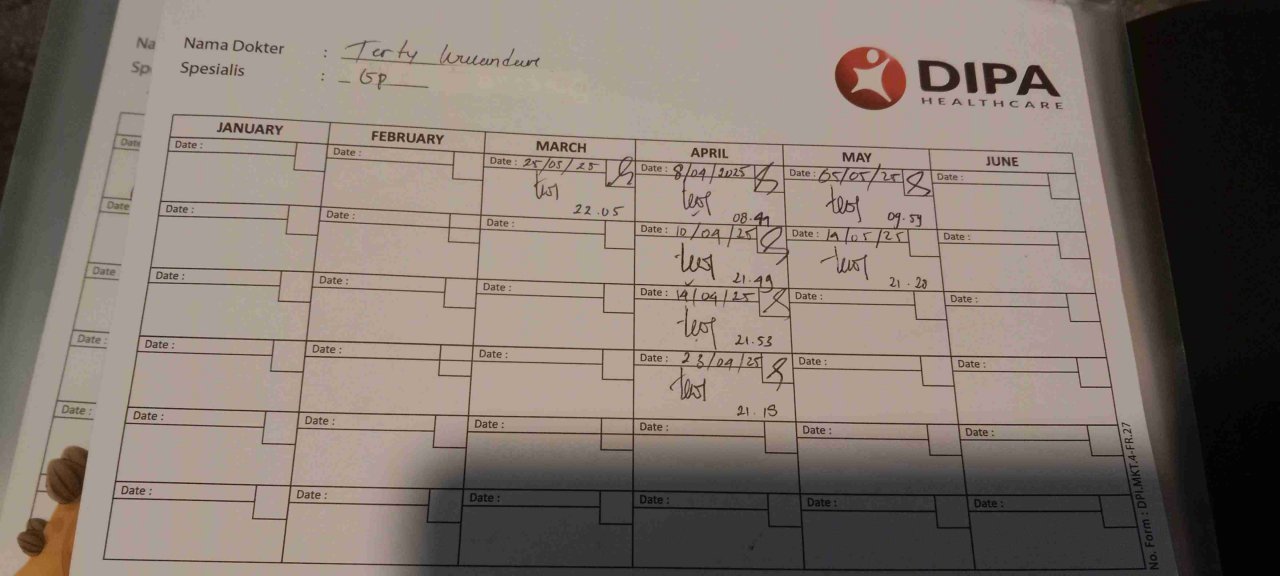 Nama Dokter : Terty
Spesialis : Gp
DIPA
HEALTHCARE
Na
Sp
JANUARY FEBRUARY MARCH APRIL MAY JUNE
Date : Date : Date : 25/03/25 Date : 8/04/2025 Date : 05/05/25 Date :
22.05 08.49 09.59
Date : Date : Date : Date : 10/04/25 Date : 14/05/25 Date :
21.49 21.20
Date : Date : Date : Date : 14/04/25 Date : Date :
21.53
Date : Date : Date : Date : 23/04/25 Date : Date :
21.19
Date : Date : Date : Date : Date : Date :
Date : Date : Date : Date : Date : Date :
No. Form : DPI.MKT.4-FR.27
Date
Date
Date
Date :
Date :